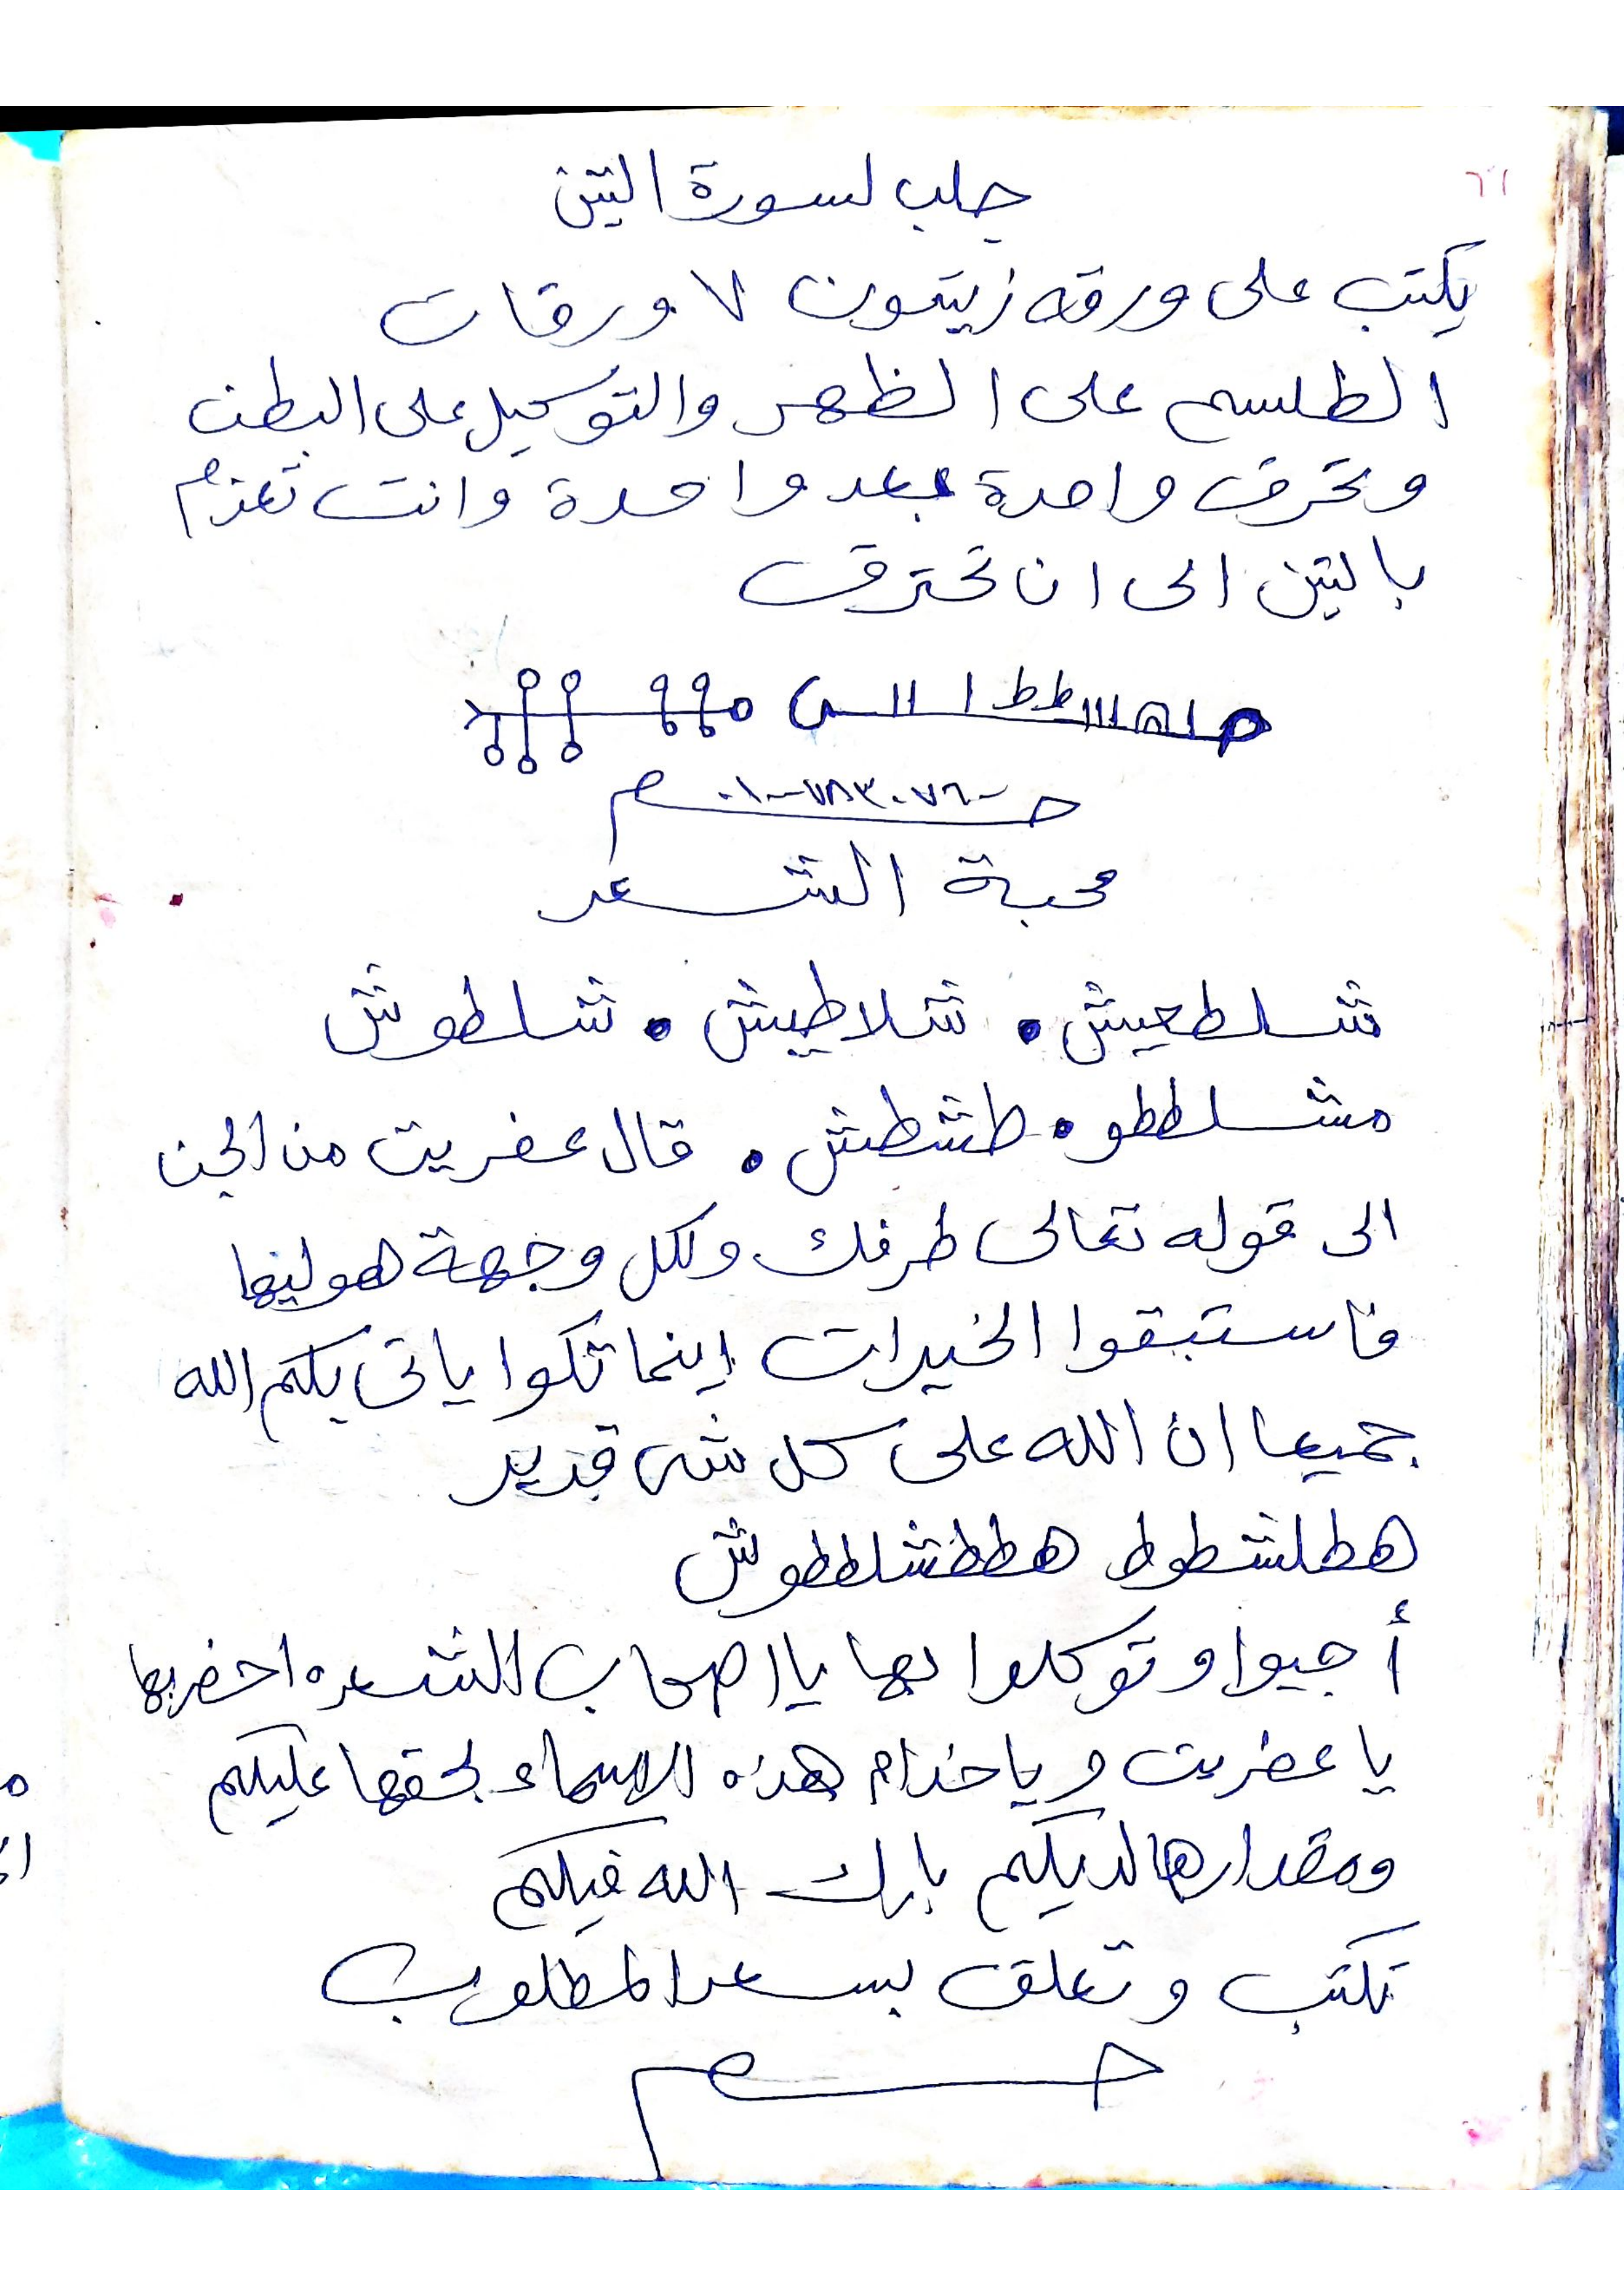 ٦١
جلب لسورة التين
يكتب على ورقه زيتون ٧ ورقات
الطلسم على الظهر والتوكيل على البطن
وتحرق واحدة بعد واحدة وانت تعزم
بالتين الى ان تحترق
محبة الشعر
شلطعيش • شلاطيش • شلطوش
مشلططو • طشطش • قال عفريت من الجن
الى قوله تعالى طرفك ولكل وجهة هو ليها
فاستبقوا الخيرات اينما تكوا ياتى بكم الله
جميعا ان الله على كل شى قدير
هطلشطوط هططشلططوش
أجيوا وتوكلوا بها يا اصحاب الشعره احضر بها
يا عفريت ويا خدام هذه الاسماء بحقها عليكم
ومقدارها لديكم بارك الله فيكم
تكتب وتعلق بسعر المطلوب